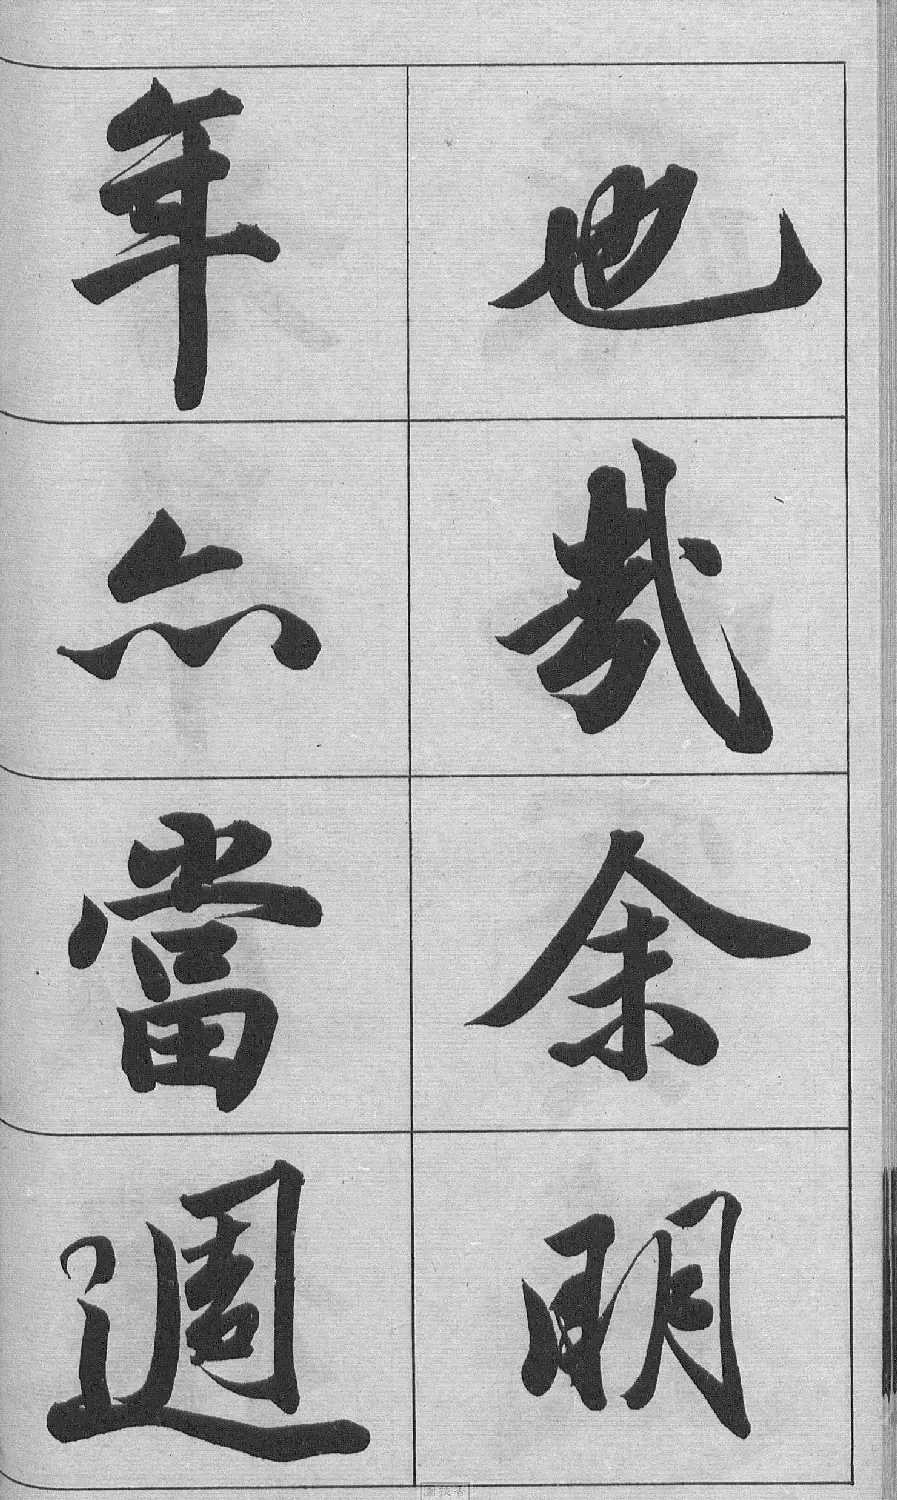 也哉余明
年亦當週